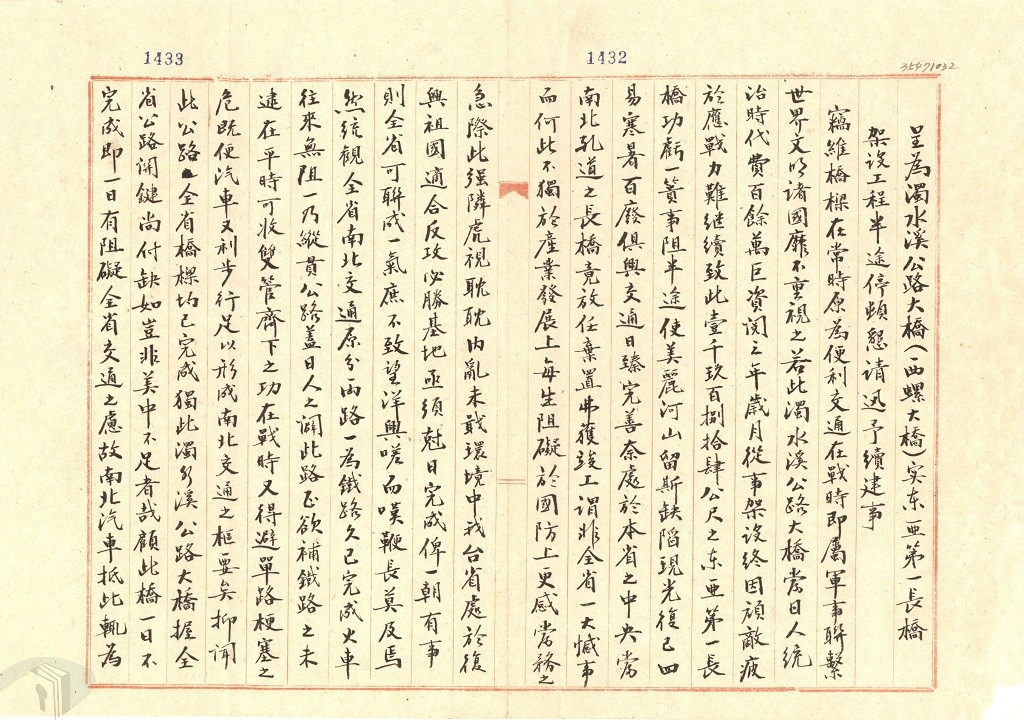 1433
1432
35471032
呈為濁水溪公路大橋(西螺大橋)实东亚第一長橋
架設工程半途停頓懇請迅予續建事
竊維橋樑在常時原為便利交通在戰時即屬軍事聯繫
世界文明諸國靡不重視之若此濁水溪公路大橋當日人統
治時代費百餘萬巨資閱三年歲月從事架設終因頑敵疲
於應戰力難继續致此壹千玖百捌拾肆公尺之东亚第一長
橋功虧一簣事阻半途使美麗河山留斯缺陷現光復已四
易寒暑百廢俱興交通日臻完善奈處於本省之中央當
南北孔道之長橋竟放任棄置弗獲竣工谓非全省一大憾事
而何此不獨於產業發展上每生阻礙於國防上更感當務之
急際此强隣虎視眈眈内亂未戢環境中我台省處於復
興祖國適合反攻必勝基地亟須尅日完成俾一朝有事
則全省可聯成一氣庶不致望洋興嗟而嘆鞭長莫及焉
然統觀全省南北交通原分両路一為鐵路久已完成火車
往來無阻一乃縱貫公路蓋日人之闢此路正欲補鐵路之未
逮在平時可收雙管齊下之功在戰時又得避單路梗塞之
危既便汽車又利步行足以形成南北交通之樞要矣抑闻
此公路全省橋樑均已完成獨此濁水溪公路大橋握全
省公路関鍵尚付缺如豈非美中不足者哉顧此橋一日不
完成即一日有阻礙全省交通之慮故南北汽車抵此輒為